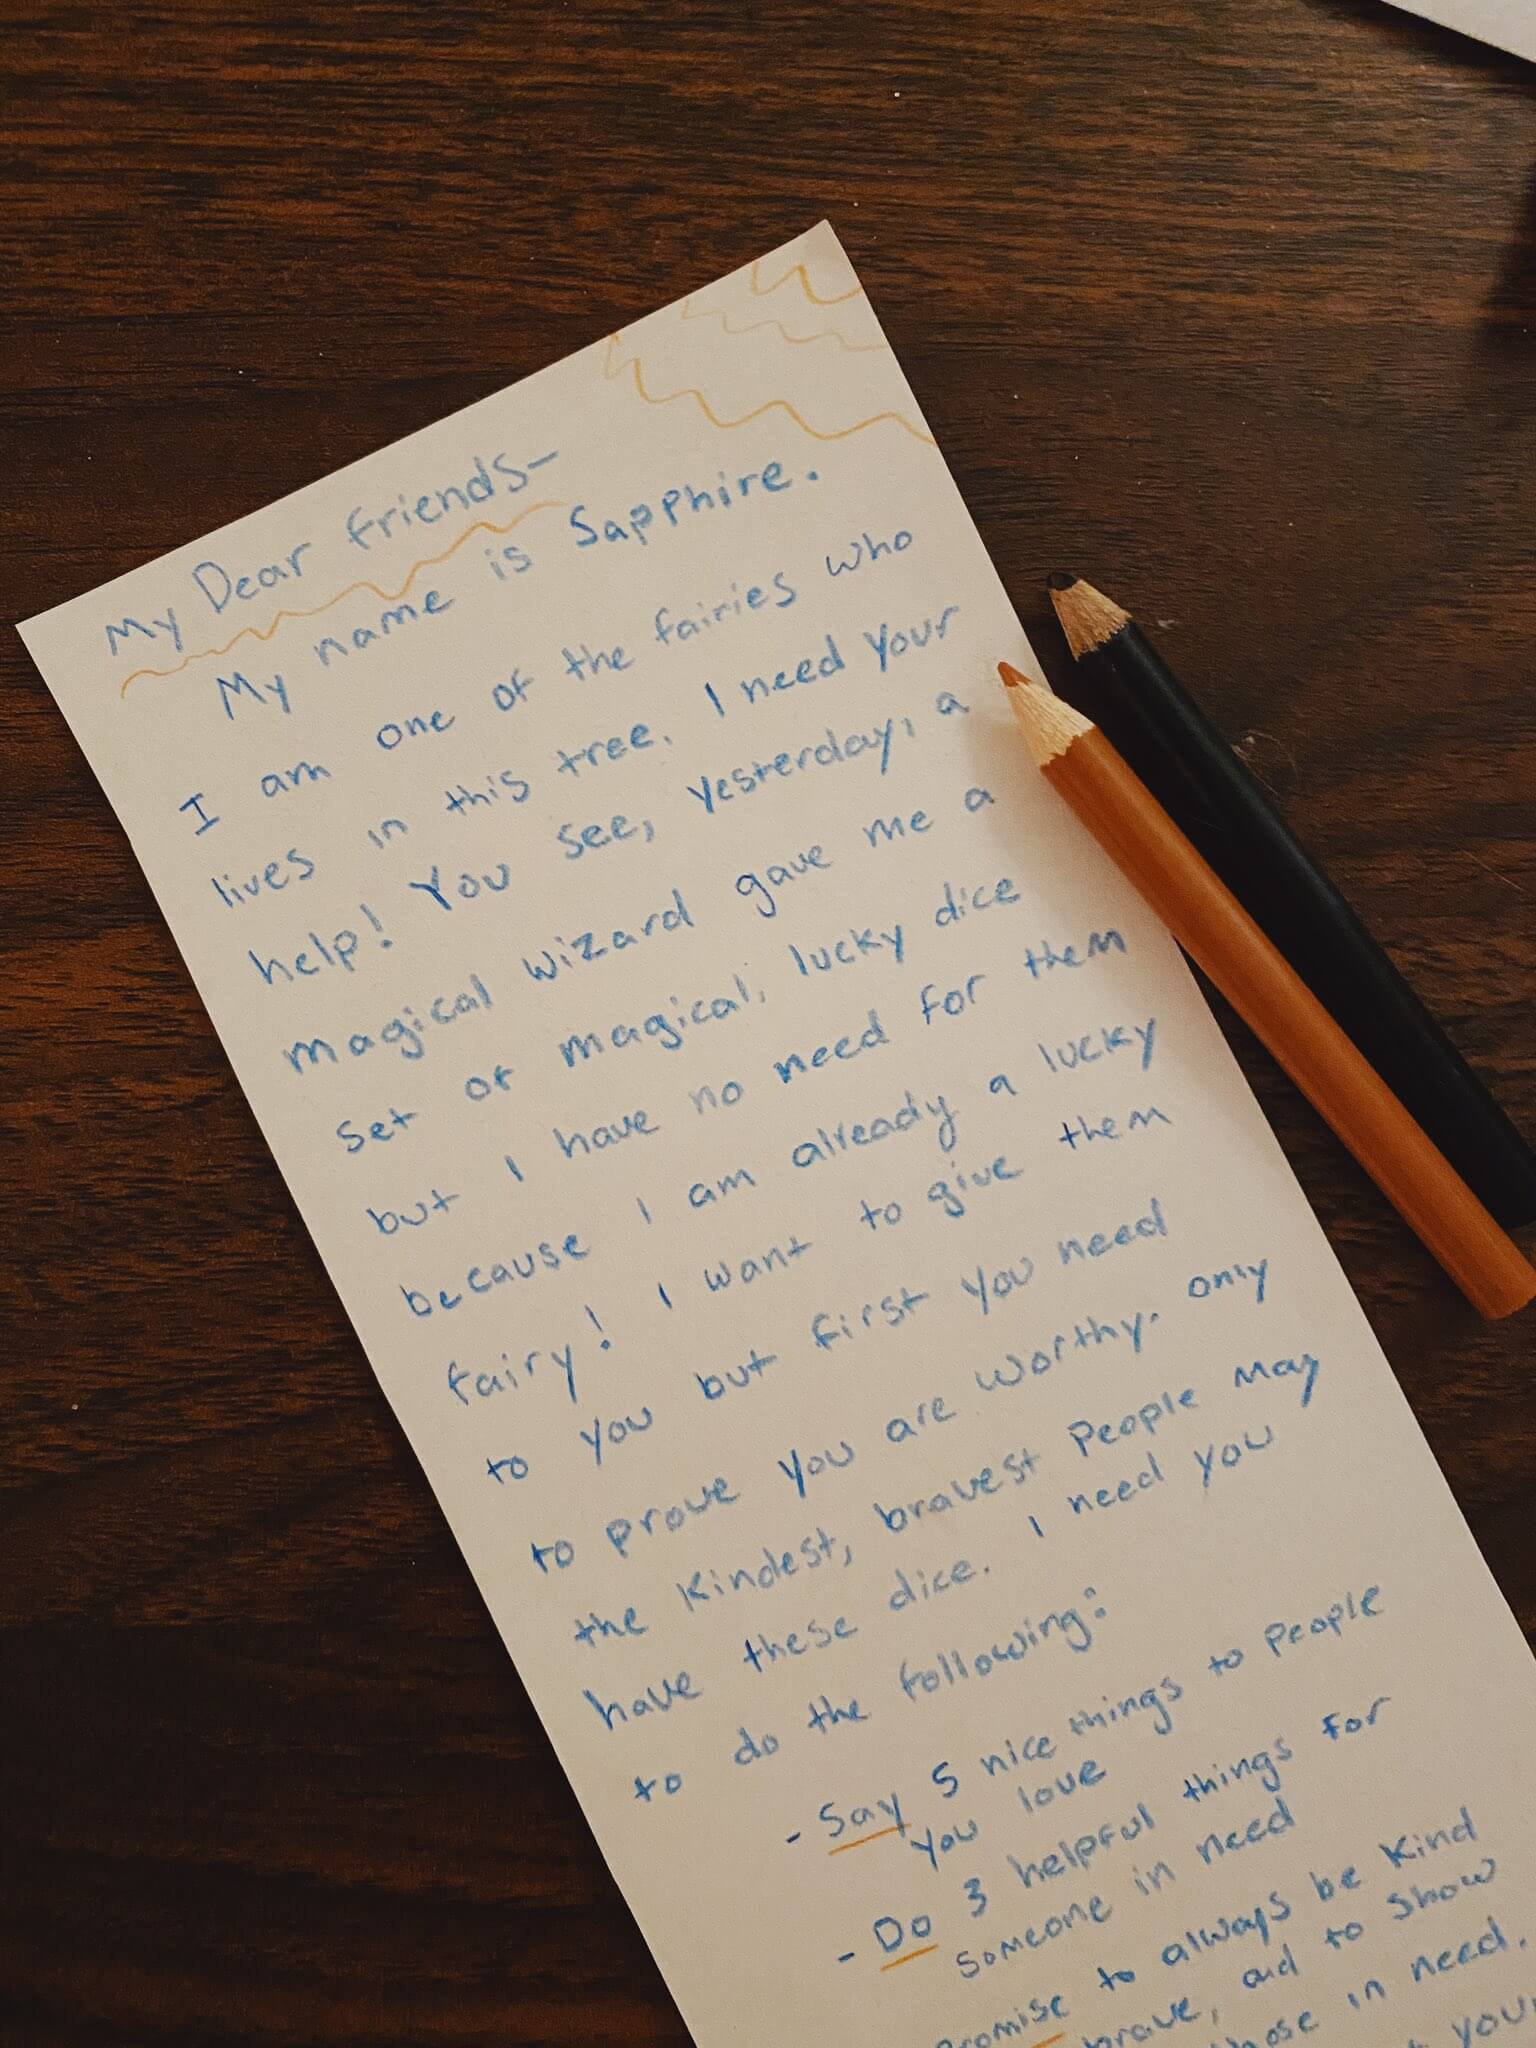 My Dear friends-
My name is Sapphire.
I am one of the fairies who
lives in this tree. I need your
help! You see, yesterday, a
magical wizard gave me a
set of magical, lucky dice
but I have no need for them
because I am already a lucky
fairy! I want to give them
to you but first you need
to prove you are worthy. Only
the kindest, bravest people may
have these dice. I need you
to do the following:
- Say 5 nice things to people
you love
- Do 3 helpful things for
someone in need
promise to always be kind
brave, and to show
those in need.
your